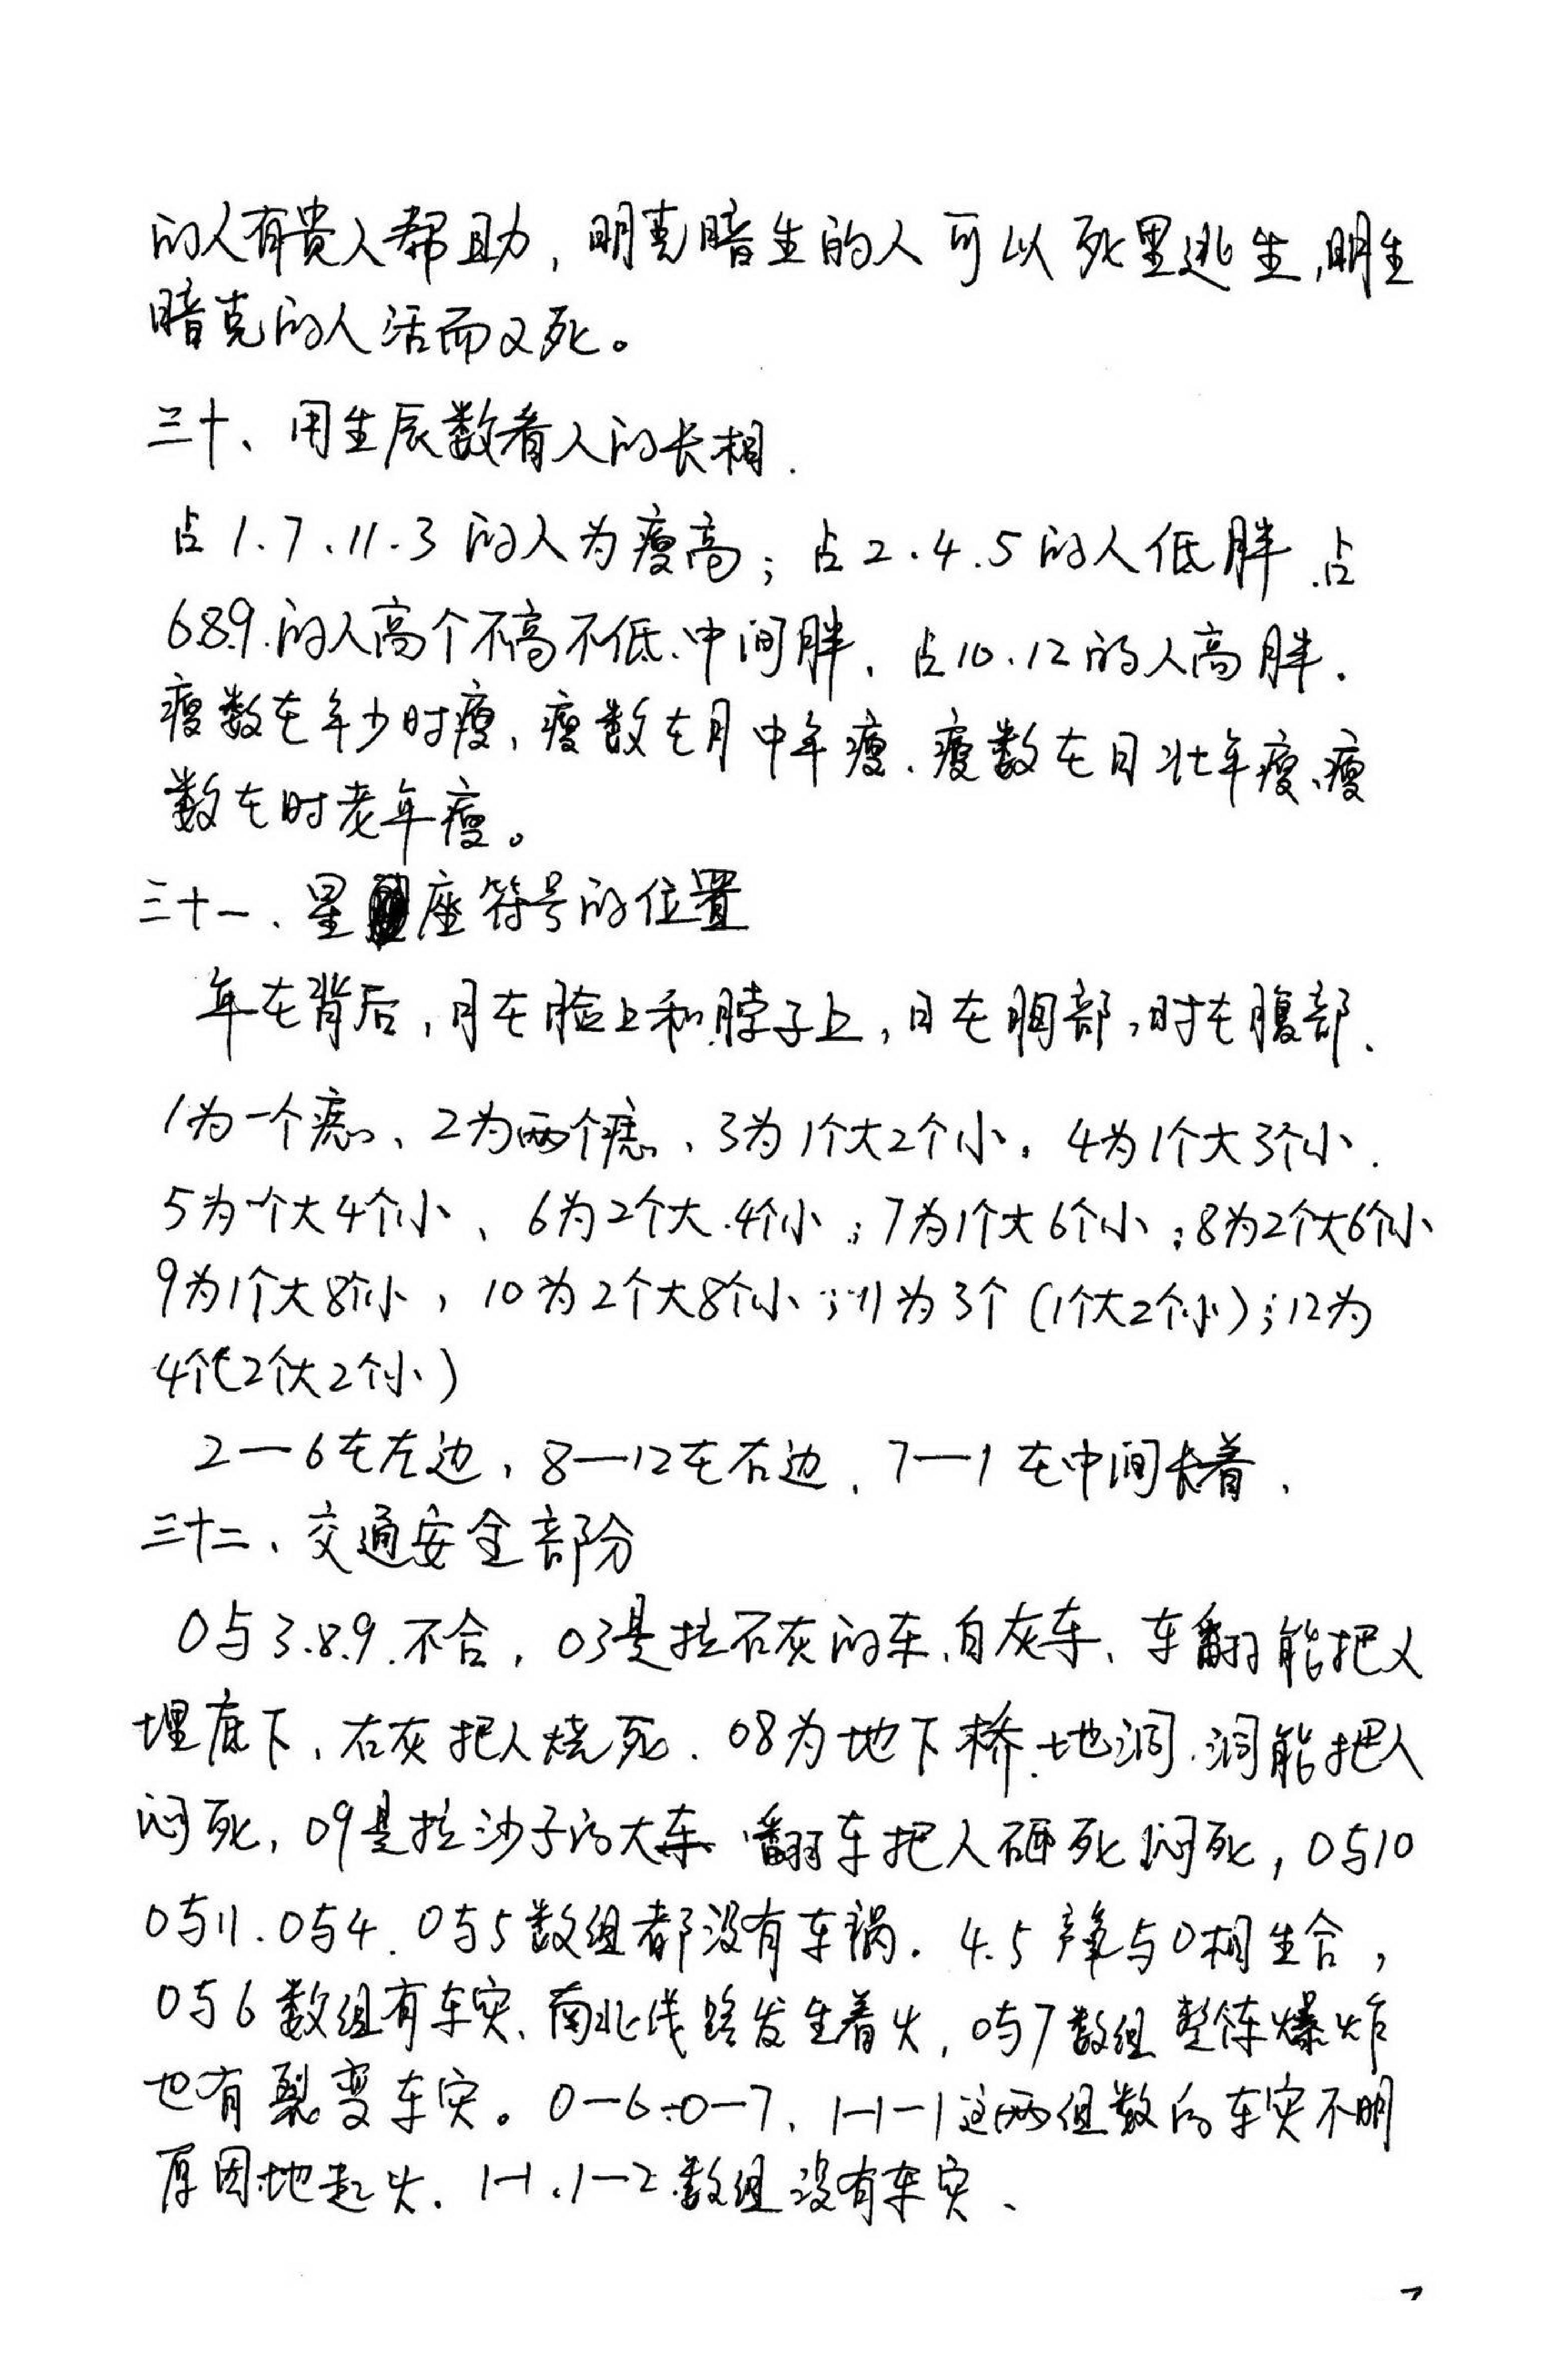 的人有贵人帮助，明克暗生的人可以死里逃生，明生
暗克的人活而又死。
三十、用生辰数看人的长相.
占1.7、11.3的人为瘦高；占2.4.5的人低胖.占
6.8.9.的人高个不高不低、中间胖、占10.12的人高胖.
瘦数在年少时瘦、瘦数在月中年瘦.瘦数在日壮年瘦、瘦
数在时老年瘦。
三十一、星座符号的位置
年在背后，月在脸上和脖子上，日在胸部，时在腹部、
1为一个痣、2为两个痣、3为1个大2个小，4为1个大3个小.
5为个大4个小、6为2个大.4个小；7为1个大6个小；8为2个大6个小
9为1个大8个小，10为2个大8个小；11为3个(1个大2个小)；12为
4个(2个大2个小)
2—6在左边，8—12在右边、7—1在中间长着、
三十二、交通安全部分
0与3.8.9.不合，03是拉石灰的车、白灰车、车翻能把人
埋底下、石灰把人烧死.08为地下桥.地洞.洞能把人
闷死，09是拉沙子的大车 翻车把人砸死闷死，0与10
0与11.0与4.0与5数组都没有车祸.4.5 与0相生合，
0与6数组有车灾、南北线路发生着火，0与7数组整体爆炸
也有裂变车灾。0—6÷0—7、1—1—1这两组数的车灾不明
原因地起火.1—1.1—2数组没有车灾、
7